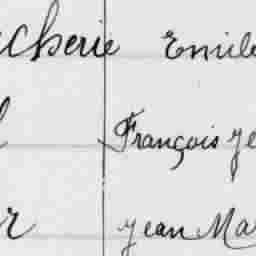 cherie Emile
François Je
r Jean Ma